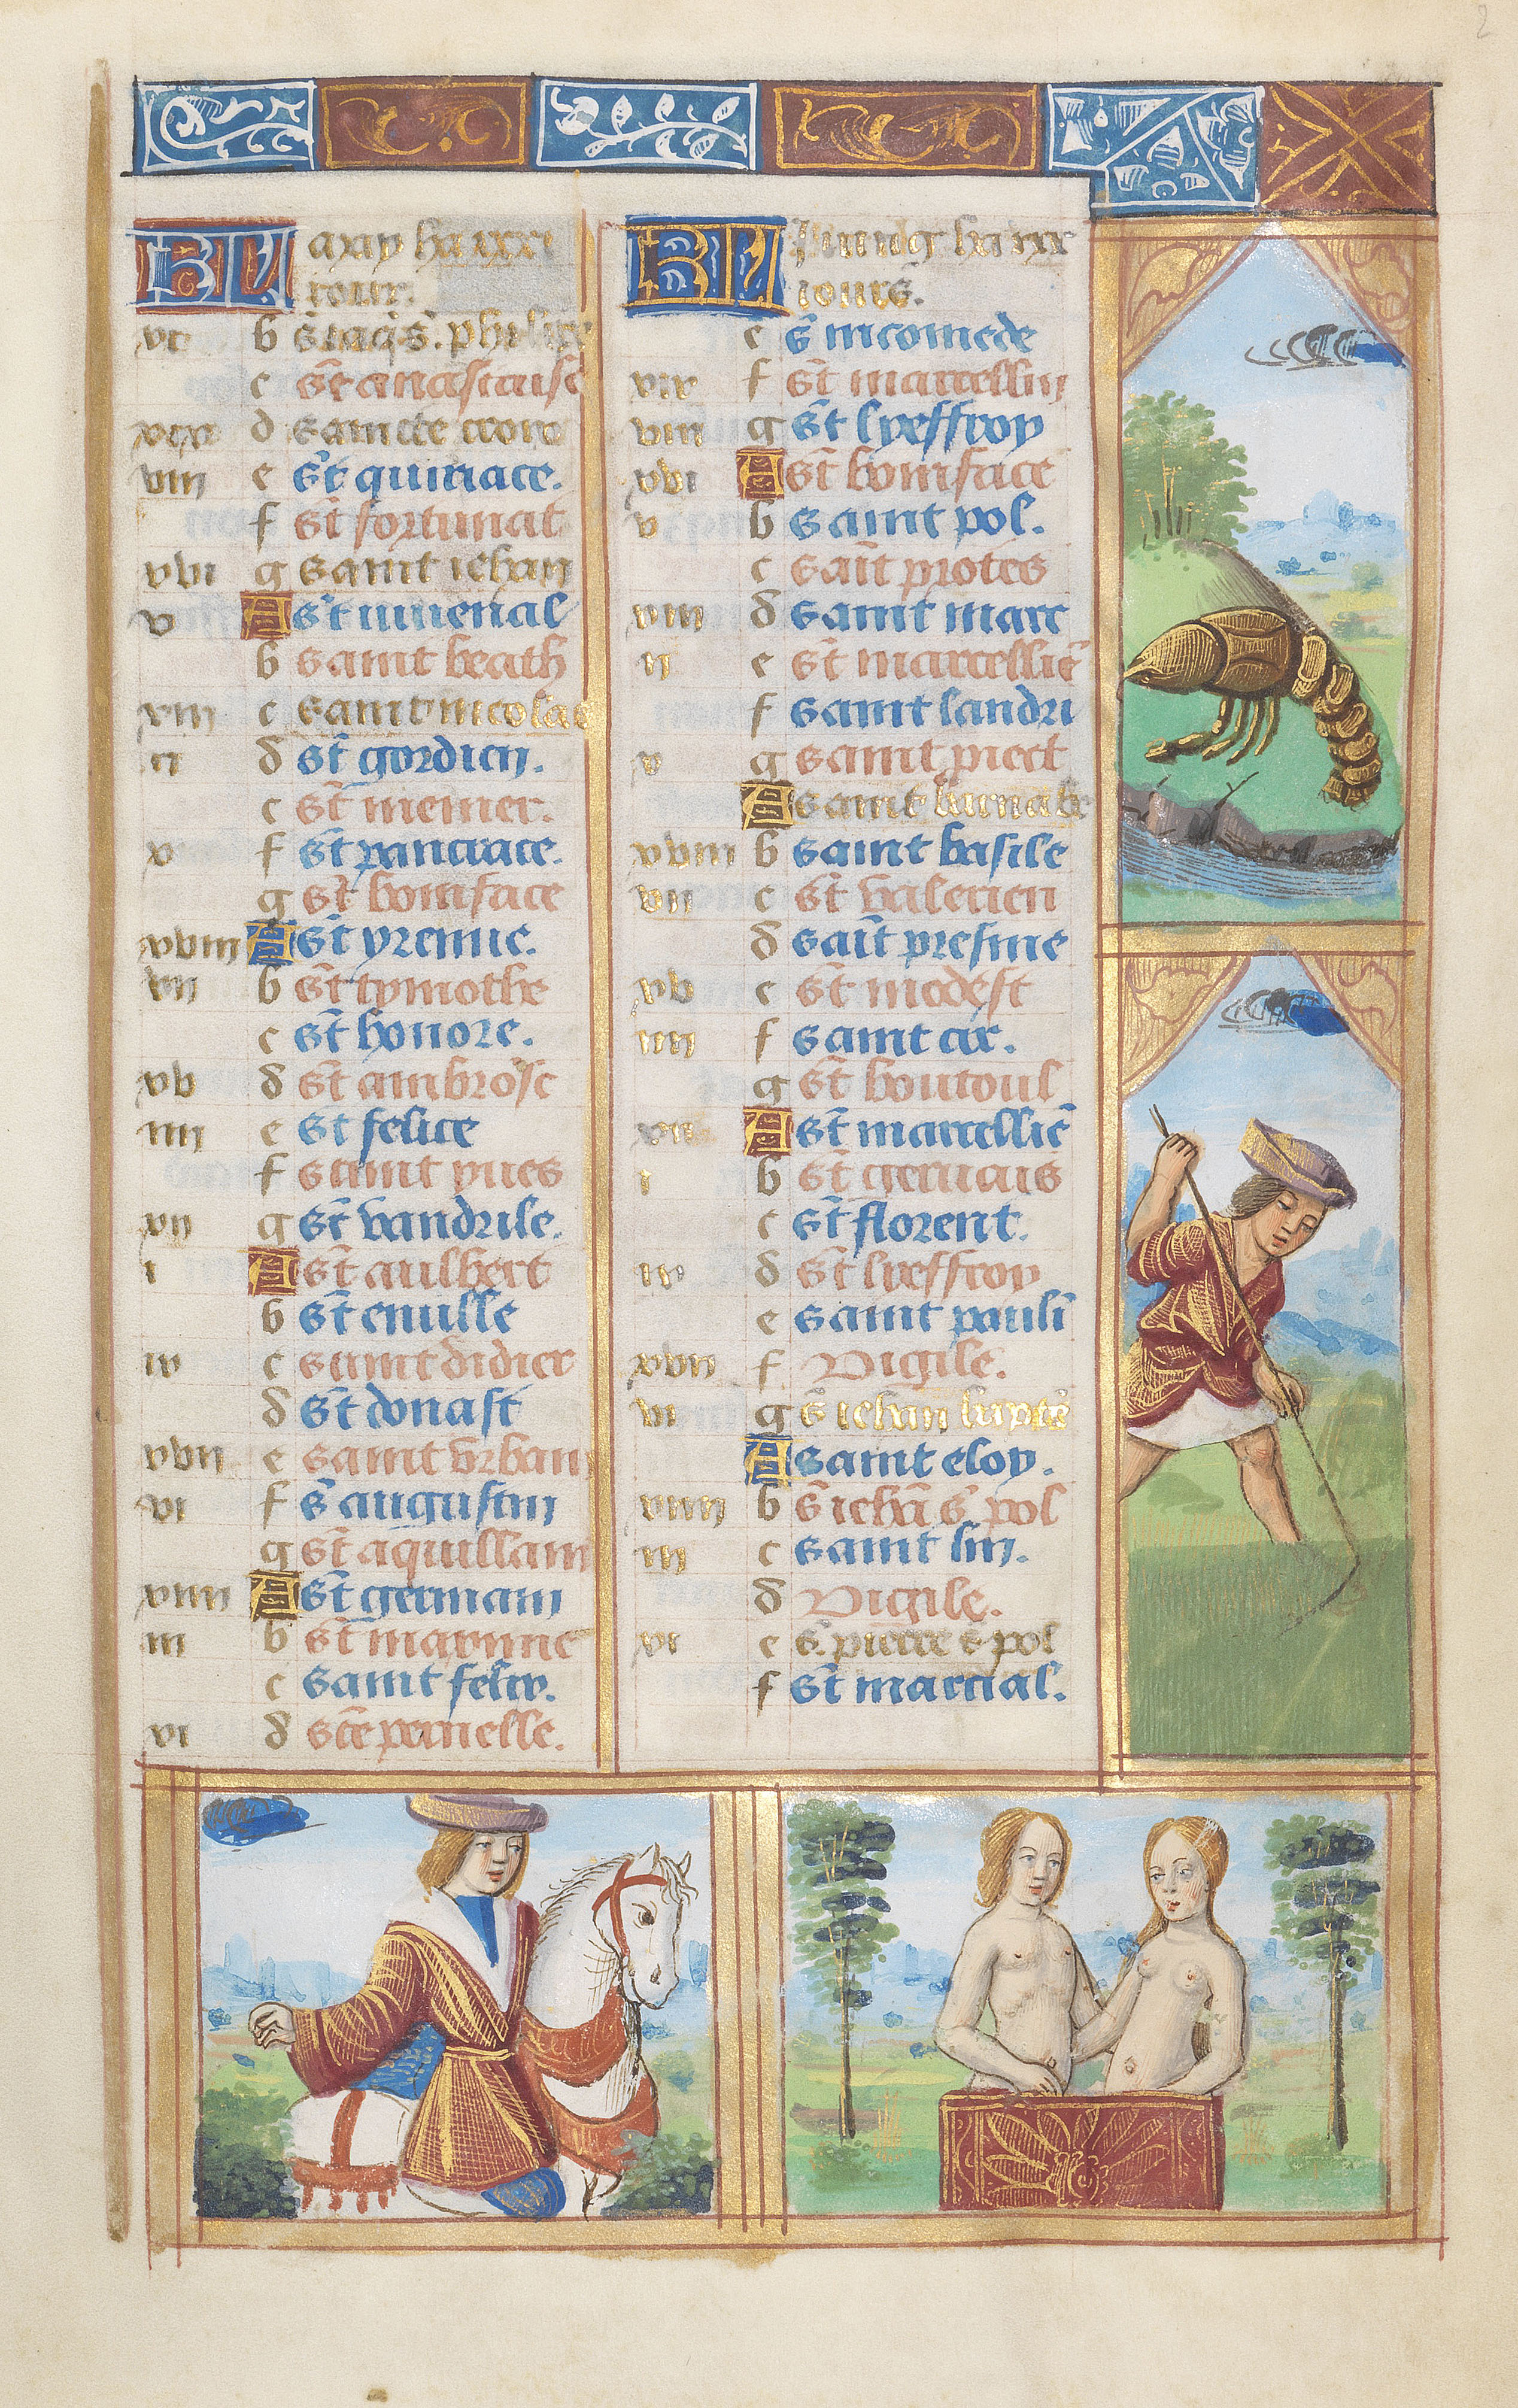 2
KL may ha xxxi
iour.
vi b s iaq̃s. phelipe
c st̃ anastaise
xix d saincte croix
viii e st̃ quiriace.
f st̃ fortunat
xvi g saint iehan
v A st̃ iuuenal
b saint beath
xiii c saint nicolas
ii d st̃ gordien.
e st̃ memer.
x f st̃ pancrace.
g st̃ boniface
xviii A st̃ yrenne.
vii b st̃ tymothe
c st̃ honore.
xv d st̃ ambrose
iiii e st felice
f saint yues
xii g st̃ vandrile.
i A st̃ aulbert
b st̃ enuille
ix c saint didier
d st̃ donast
xvii e saint vrban
vi f s̃ augustin
g st̃ aquillam
xiiii A st̃ germain
iii b st̃ marinne
c saint felix.
xi d sc̃e pernelle.
KL Iuing ha xxx
iours.
e s̃ nicomede
xix f st̃ marcellin
viii g st̃ lyeffroy
xvi A st̃ boniface
v b saint pol.
c sait̃ protes
xiii d saint marc
ii e st̃ marcelliẽ
f saint landri
x g saint piect
A saint barnabe
xviii b saint basile
vii c st̃ valerien
d sait̃ presme
xv e st̃ modest
iiii f saint cir.
g st̃ boutoul
xii A st̃ marcelliẽ
i b st̃ geruais
c st̃ florent.
ix d st̃ lyeffroy
e saint pauli
xvii f Vigile.
vi g s̃ iehan bapte
A saint eloy.
xiiii b s̃ iehã s̃ pol
iii c saint lin.
d Vigile.
xi e s. pierre s pol
f st̃ marcial.